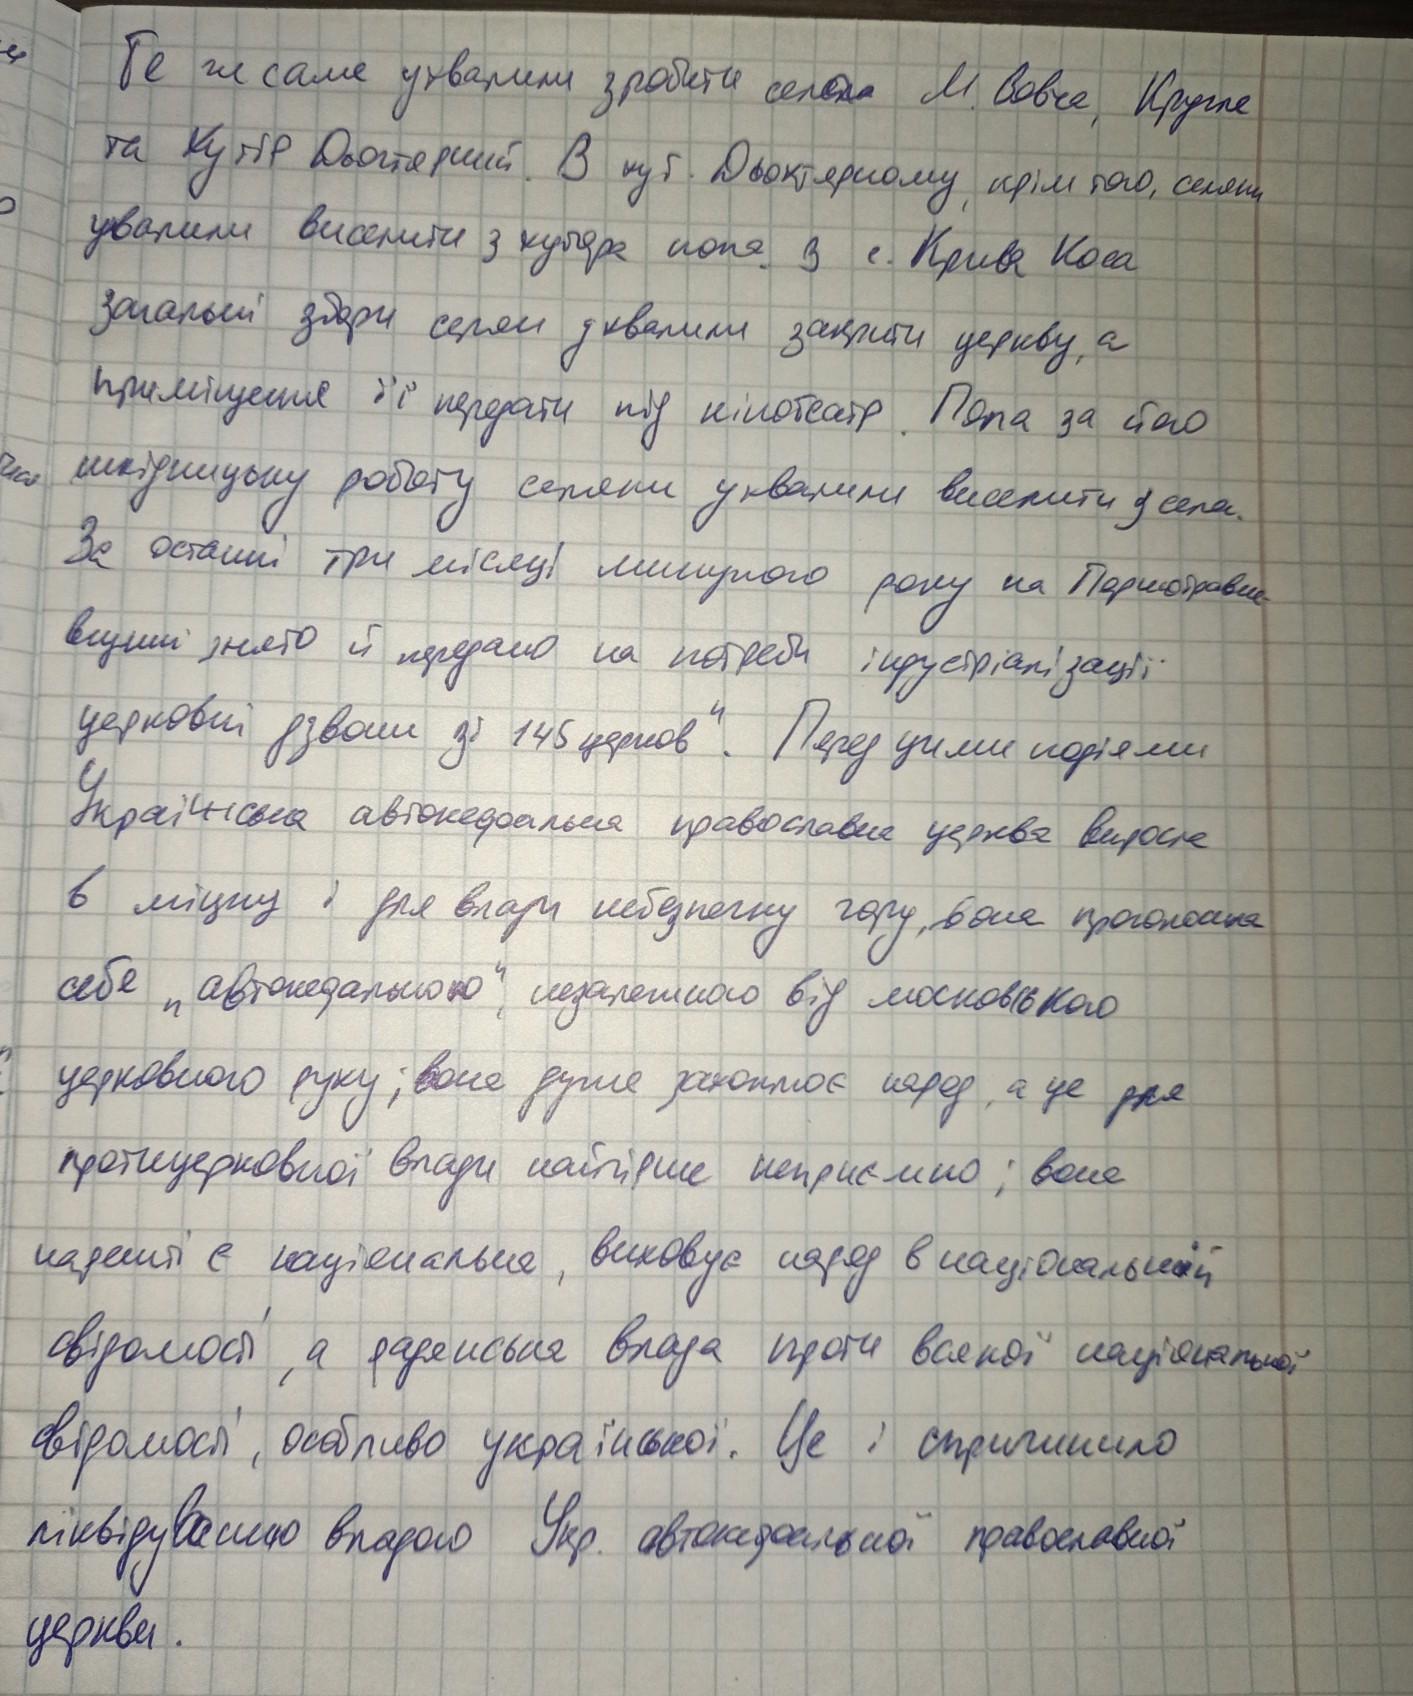 Те ж саме ухвалили зробити селяна М. Вовча, Кругле
та Хутір Дьогтярний. В хут. Дьоктярному, крім того, селяни
увалили виселити з хутора попа. З с. Крива Коса
загальні збори селян ухвалили закрити церкву, а
приміщення її передати під кінотеатр. Попа за його
шкідницьку роботу селяни ухвалили виселити з села.
За останні три місяці минулого року на Першотравне-
вщині знято й передано на потреби індустріалізації
церковні дзвони зі 145 церков". Перед цими подіями
Українська автокефальна православна церква виросла
в міцну і для влади небезпечну гору, вона проголосила
себе „автокедальною", незалежного від московського
церковного руху; вона дуже захоплює народ, а це для
протицерковної влади найгірше неприємно; вона
нарешті є національна, виховує народ в національній
свідомості, а радянська влада проти всякої національної
свідомості, особливо української. Це і спричинило
ліквідуванню владою Укр. автокефальної православної
церкви.